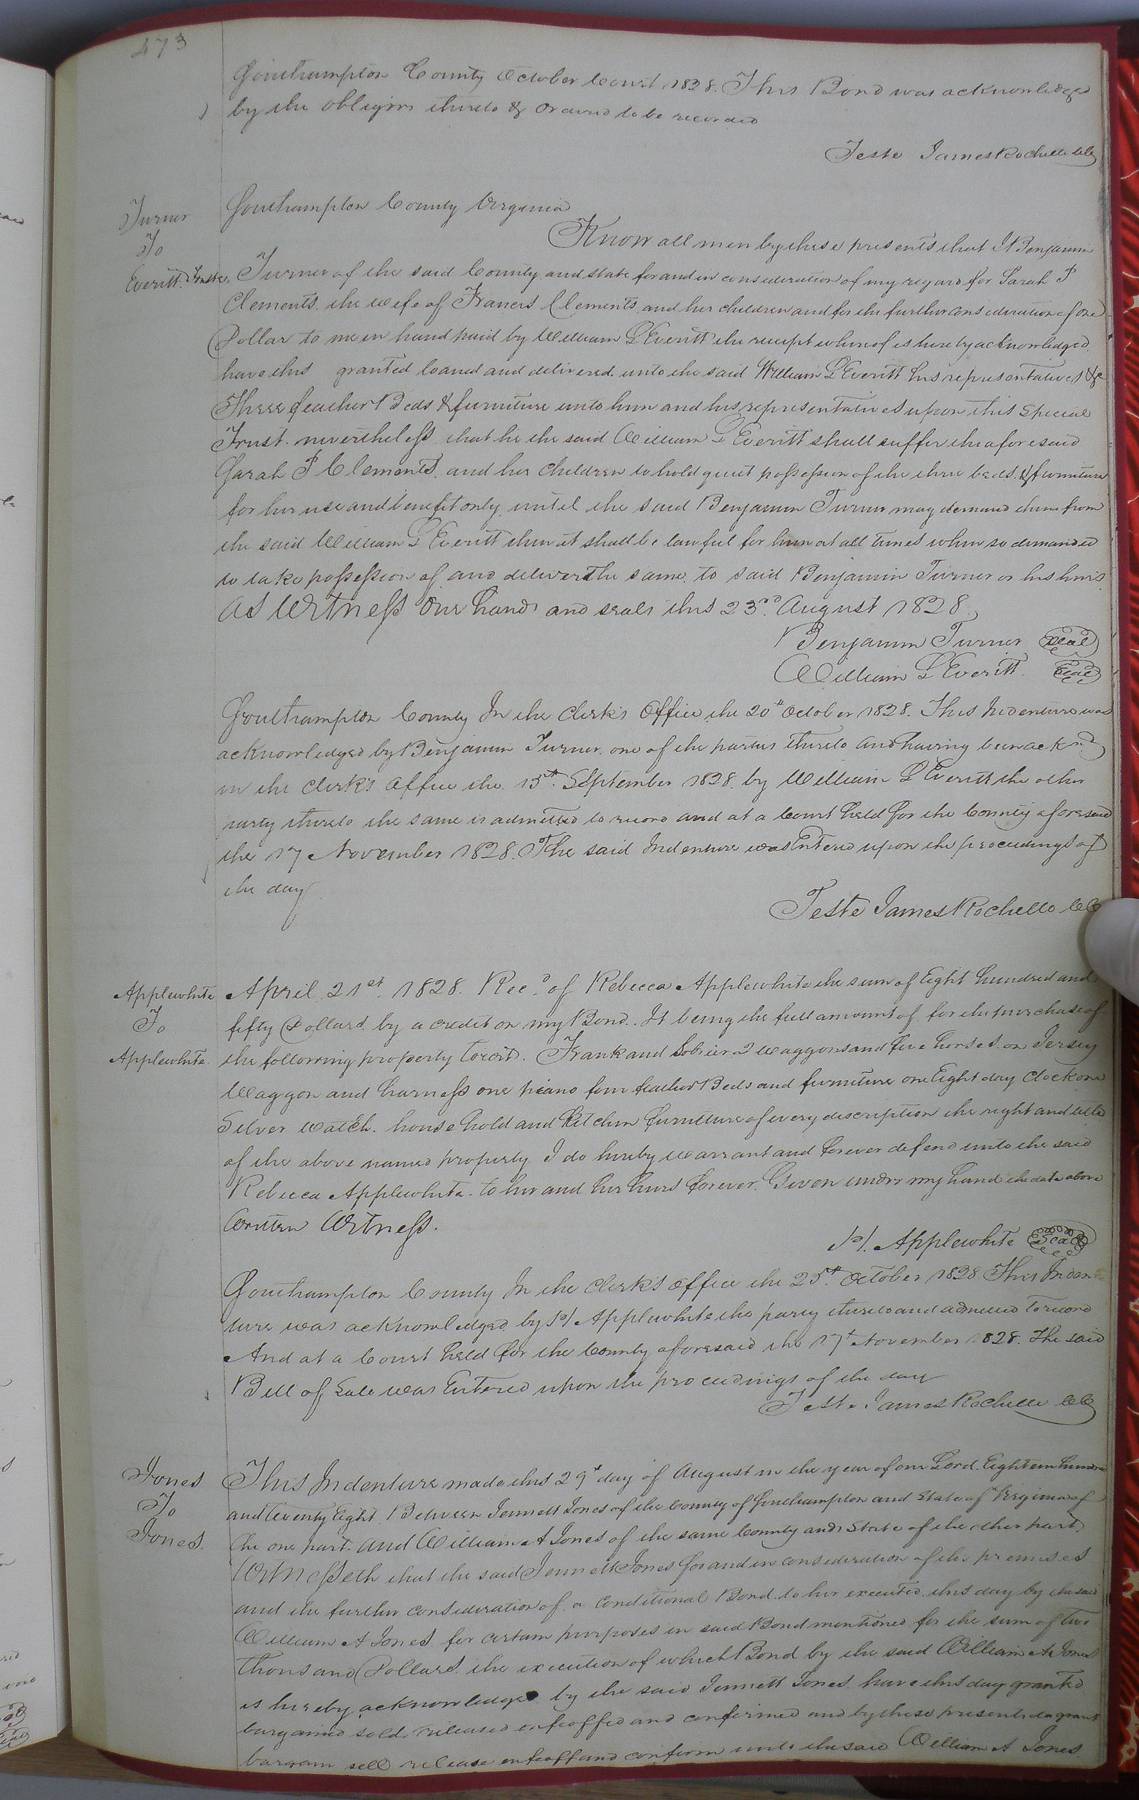 473
Southampton County October Court 1828. This Bond was acknowledged
by the obligors thereto & ordered to be recorded
Teste James Rochelle CC
Turner
To
Everitt Trustee
Southampton County Virginia
Know all men by these presents that I Benjamin
Turner of the said County and state for and in consideration of my regard for Sarah P
Clements the wife of Francis Clements and her children and for the further consideration of one
Dollar to me in hand paid by William L Everitt the receipt whereof is hereby acknowledged
have this granted loaned and delivered unto the said William L Everitt his representatives &c
Three feather Beds & furniture unto him and his representatives upon this Special
Trust nevertheless that he the said William L Everitt shall suffer the aforesaid
Sarah P Clements and her Children to hold quiet possession of the three beds & furniture
for her use and benefit only until the said Benjamin Turner may demand them from
the said William L Everitt then it shall be lawful for him at all times when so demanded
to take possession of and deliver the same to said Benjamin Turner or his heirs
As Witness Our hands and seals this 23rd August 1828.
Benjamin Turner Seal
William L Everitt Seal
Southampton County In the Clerk's Office the 20th October 1828. This Indenture was
acknowledged by Benjamin Turner one of the parties thereto and having been ackd
in the Clerk's Office the 15th September 1828 by William L Everitt the other
party thereto the same is admitted to record and at a Court held for the County aforesaid
the 17 November 1828. The said Indenture was Entered upon the proceedings of
the day
Teste James Rochelle CC
Applewhite
To
Applewhite
April 21st 1828. Recd of Rebecca Applewhite the sum of Eight hundred and
fifty Dollars by a credit on my Bond. It being the full amount of for the purchase of
the following property towit. Frank and 2 waggons and five horses on Jersey
Waggon and harness one piano four feather Beds and furniture one Eight day Clock one
Silver watch. house hold and Kitchen furniture of every description the right and title
of the above named property I do hereby warrant and forever defend unto the said
Rebecca Applewhite to her and her heirs forever. Given under my hand the date above
Written Witness.
H. Applewhite Seal
Southampton County In the Clerk's Office the 25th October 1828 This Inden
ture was acknowledged by H Applewhite the party thereto and admitted to record
And at a Court held for the County aforesaid the 17th November 1828. The said
Bill of Sale was Entered upon the proceedings of the day
Teste James Rochelle CC
Jones
To
Jones
This Indenture made this 29th day of August in the year of our Lord Eighteen hundred
and twenty Eight Between Jennett Jones of the County of Southampton and State of Virginia of
the one part and William A Jones of the same County and State of the other part
Witnesseth that the said Jennett Jones for and in consideration of the premises
and the further consideration of a Conditional Bond to her executed this day by the said
William A Jones for certain purposes in said Bond mentioned for the sum of two
thousand Dollars the execution of which Bond by the said William A Jones
is hereby acknowledged by the said Jennett Jones have this day granted
bargained sold released enfeoffed and confirmed and by these presents do grant
bargain sell release enfeoff and confirm unto the said William A Jones